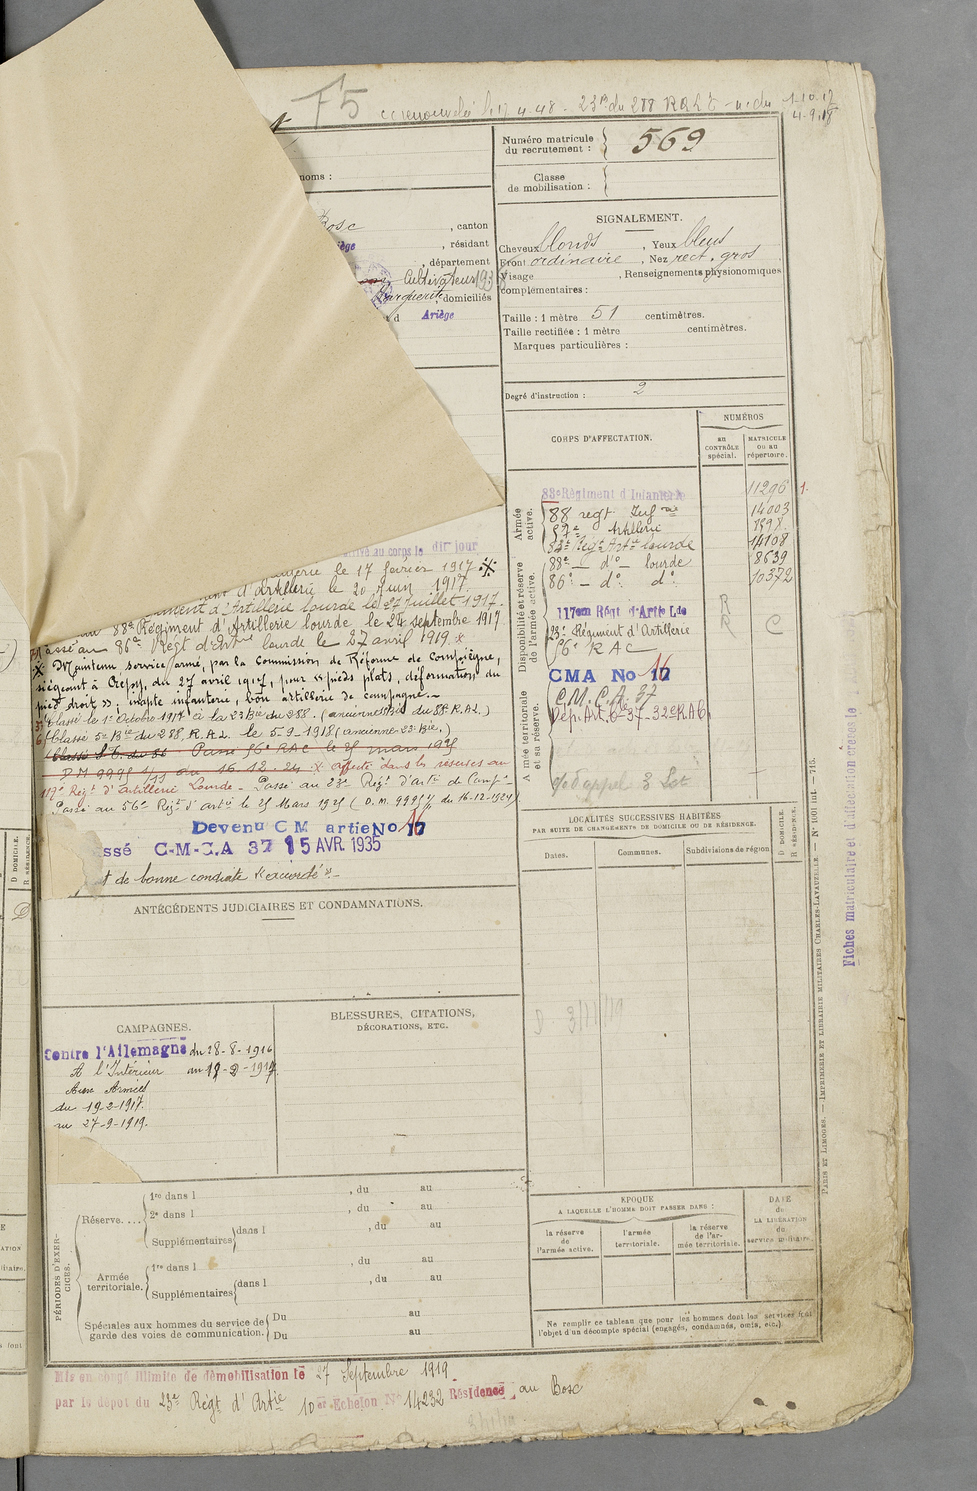 F5
23e du 288 RALT
1-10-17
4-9-18
Numéro matricule
du recrutement :
569
Classe
de mobilisation :
noms :
Bosc
, canton
, résidant
, département
Cultivateurs
Marguerite, domiciliés
d Ariège
SIGNALEMENT.
Cheveux blonds , Yeux bleus
Front ordinaire , Nez rect. gros
Visage , Renseignements physionomiques
complémentaires :
Taille : 1 mètre 51 centimètres.
Taille rectifiée : 1 mètre centimètres.
Marques particulières :
Degré d'instruction : 2
CORPS D'AFFECTATION.
NUMÉROS
au
CONTRÔLE
spécial.
MATRICULE
ou au
répertoire.
Armée
active.
88e Régiment d'Infanterie 11296
88 regt Inf rie 14003
57e Artillerie
Regt Art ie lourde 14108
88e — do — lourde 8639
86e — do do 10372
Disponibilité et réserve
de l'armée active.
117em Régt d'Artie Lde R
23e Régiment d'Artillerie R C
56e RAC
CMA No 17 16
C.M.C.A. 37
Armée territoriale
et sa réserve.
arrivé au corps le dit jour
le 17 février 1917
d'Artillerie le 20 Juin 1917.
d'Artillerie lourde le 27 juillet 1917.
au 88e Régiment d'Artillerie lourde le 24 septembre 1917
Passé au 86e Régt d'Art ie lourde le 27 avril 1919
Maintenu service armé, par la Commission de Réforme de Compiègne,
siégeant à Crépy, du 27 avril 1917, pour « pieds plats, déformation du
pied droit » ; inapte infanterie, bon artillerie de campagne.—
Classé le 1er Octobre 1917 à la 23 Bie du 288. (ancienne Bie du 88e R.A.L.)
Classé 5e Bie du 288 R.A.L. le 5-9-1918 (ancienne 23e Bie.)
Passé 56e RAC le 25 mars 1925
D.M. 9995 du 16.12.24 affecté dans les réserves au
117e Régt d'Artillerie Lourde - Passé au 23e Régt d'arti de Camp ne
Passé au 56e Régt d'arti le 25 Mars 1925 (D.M. 9995 du 16-12-1924)
Devenu C M artie No 17 16
ssé C-M-C.A 37 15 AVR. 1935
t de bonne conduite "accordé".—
ANTÉCÉDENTS JUDICIAIRES ET CONDAMNATIONS.
LOCALITÉS SUCCESSIVES HABITÉES
PAR SUITE DE CHANGEMENTS DE DOMICILE OU DE RÉSIDENCE.
Dates.
Communes.
Subdivisions de région
D DOMICILE.
R RÉSIDENCE.
CAMPAGNES.
Contre l'Allemagne du 28-8-1916
A l'Intérieur au 19-2-1917.
Aux Armées
du 19-2-1917.
au 27-9-1919.
BLESSURES, CITATIONS,
DÉCORATIONS, ETC.
PÉRIODES D'EXER-
CICES.
Réserve....
1re dans l , du au
2e dans l , du au
Supplémentaires dans l , du au
Armée
territoriale.
1re dans l , du au
Supplémentaires dans l , du au
Spéciales aux hommes du service de
garde des voies de communication.
Du au
Du au
ÉPOQUE
A LAQUELLE L'HOMME DOIT PASSER DANS :
la réserve
de
l'armée active.
l'armée
territoriale.
la réserve
de l'ar-
mée territoriale.
DATE
de
LA LIBÉRATION
du
service militaire.
Ne remplir ce tableau que pour les hommes dont les services font
l'objet d'un décompte spécial (engagés, condamnés, omis, etc.).
Mis en congé illimité de démobilisation le 27 Septembre 1919
par le dépôt du 23e Régt d'Artie 10er Echelon No 14232 Résidence au Bosc
PARIS ET LIMOGES. — IMPRIMERIE ET LIBRAIRIE MILITAIRES CHARLES-LAVAUZELLE. — No 1001 int. — 715.
Fiches matriculaire et d'affectation créées le